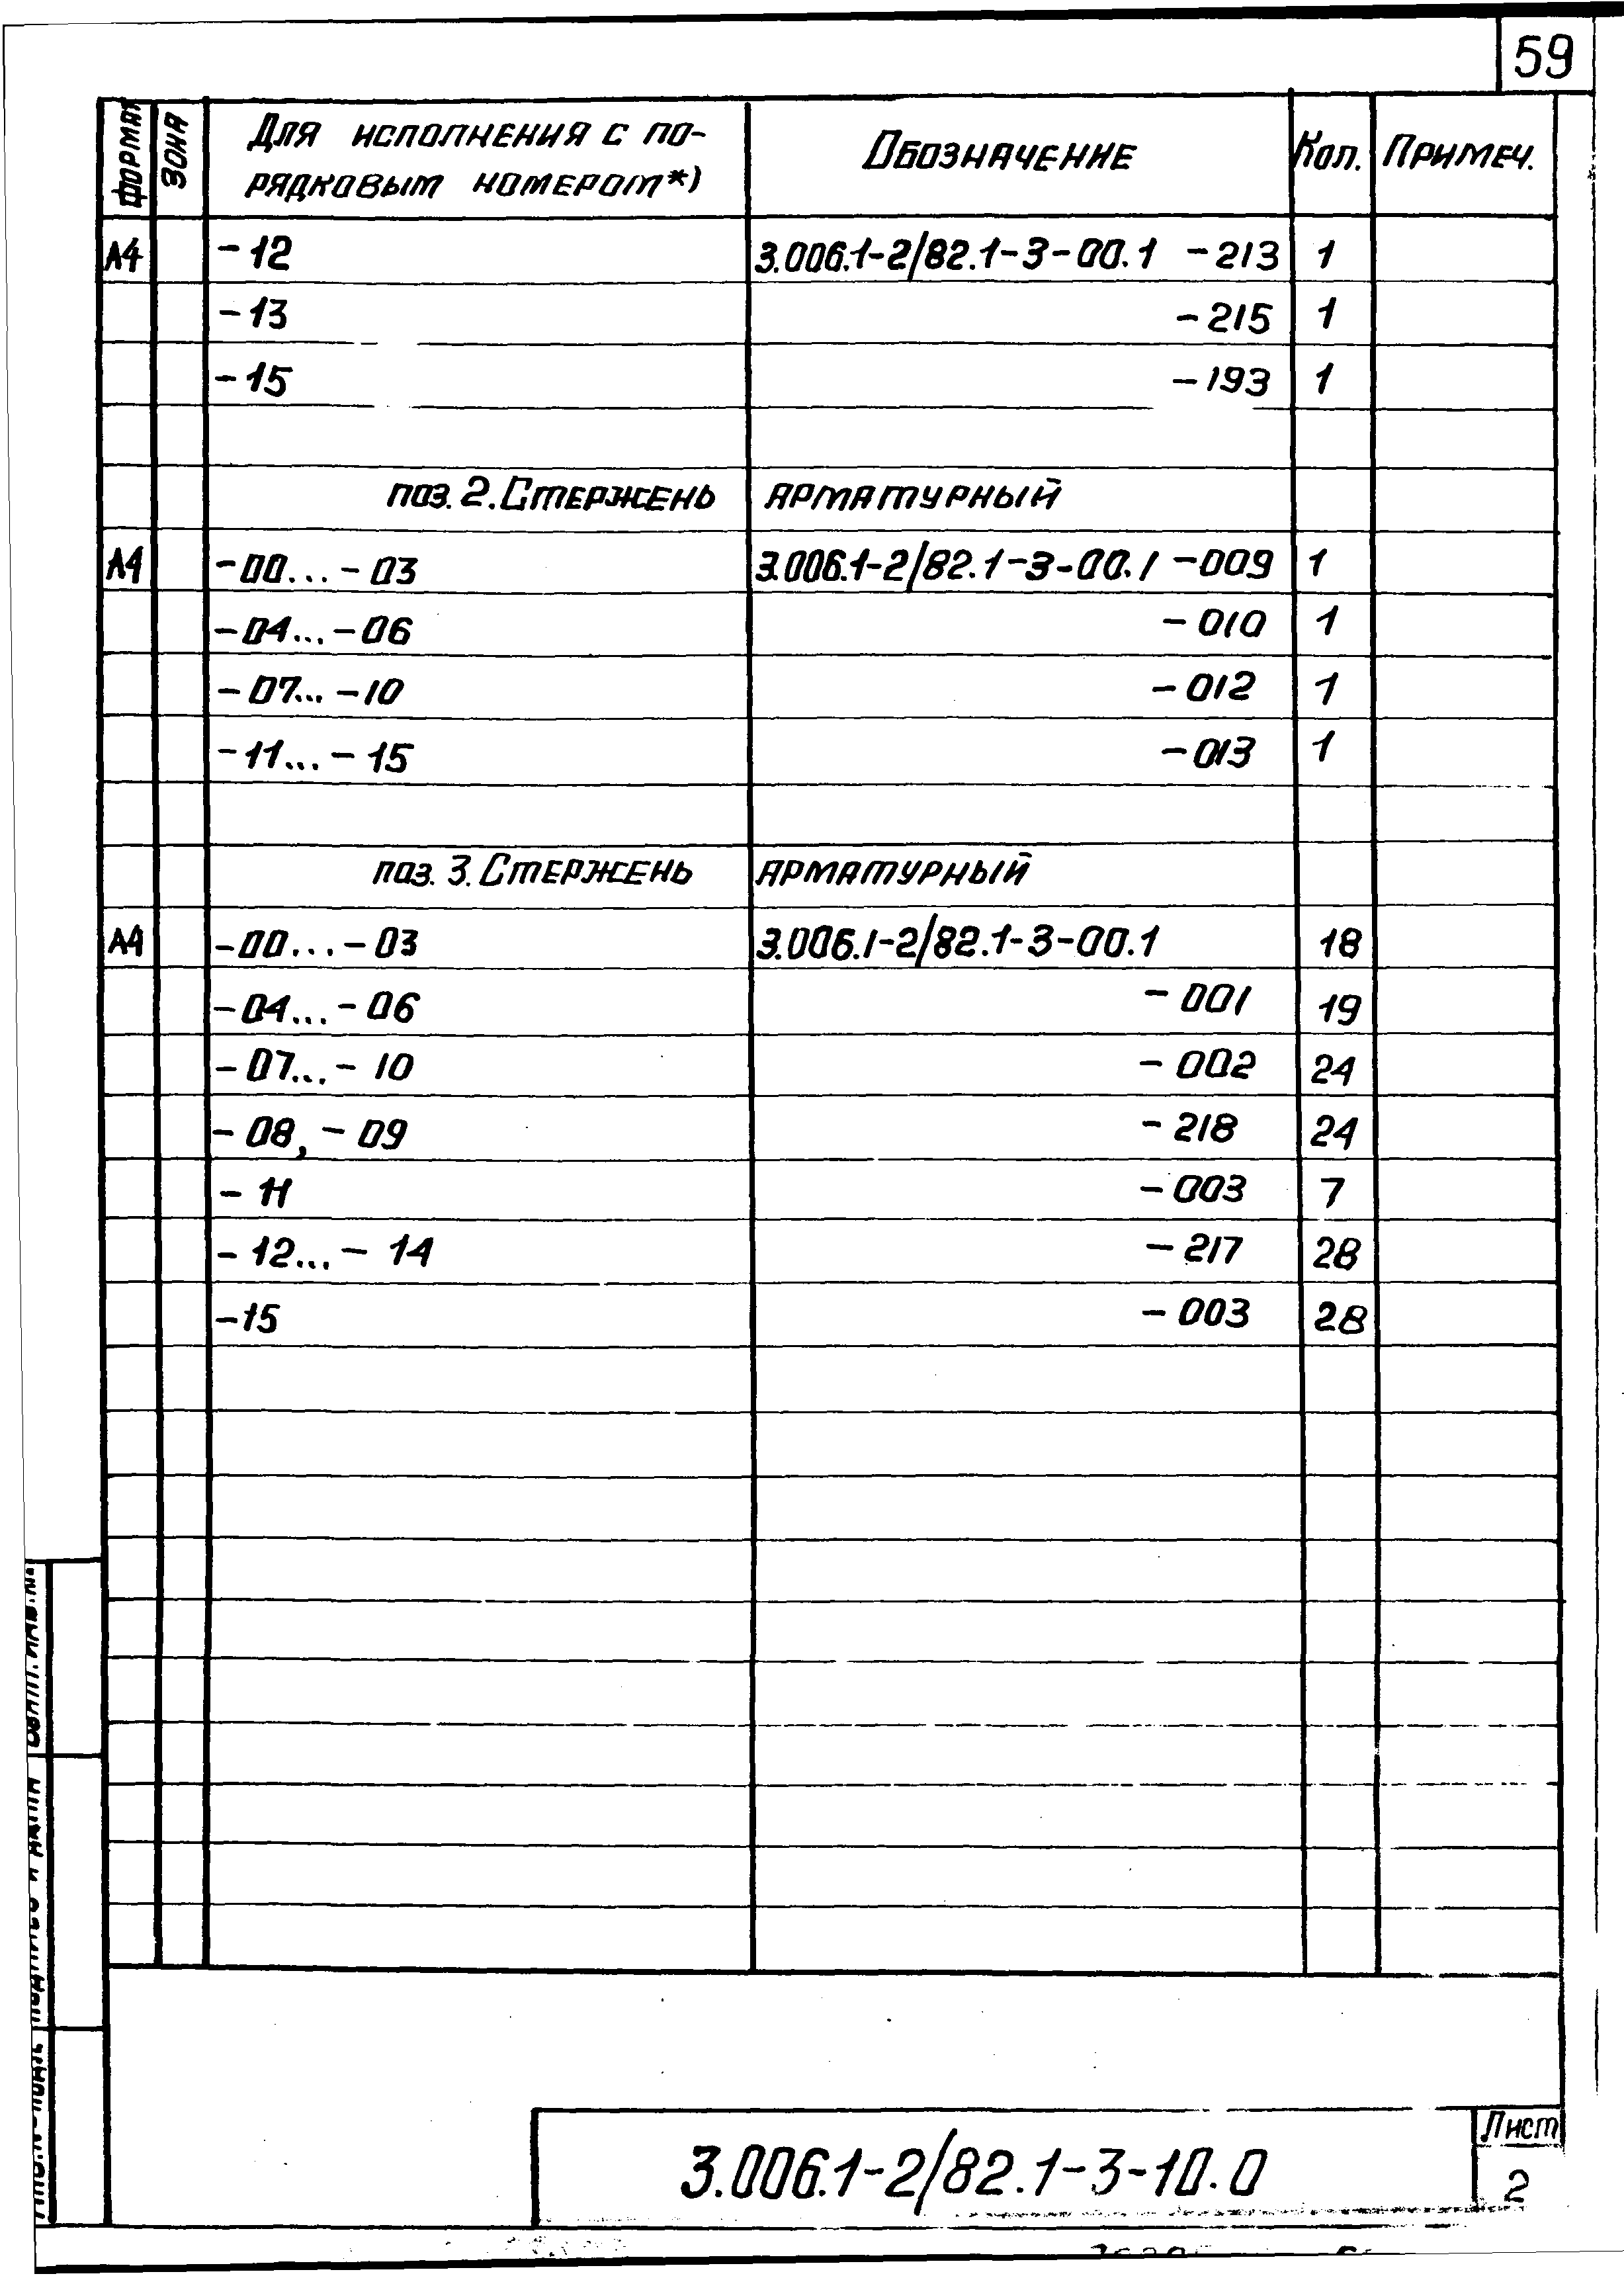 59
Формат Зона Для исполнения с по- Обозначение Кол. Примеч.
рядковым номером*)
А4 -12 3.006.1-2/82.1-3-00.1 -213 1
-13 -215 1
-15 -193 1
поз. 2. Стержень арматурный
А4 -00...-03 3.006.1-2/82.1-3-00.1 -009 1
-04...-06 -010 1
-07...-10 -012 1
-11...-15 -013 1
поз. 3. Стержень арматурный
А4 -00...-03 3.006.1-2/82.1-3-00.1 18
-04...-06 -001 19
-07...-10 -002 24
-08, -09 -218 24
-11 -003 7
-12...-14 -217 28
-15 -003 28
3.006.1-2/82.1-3-10.0
Лист
2